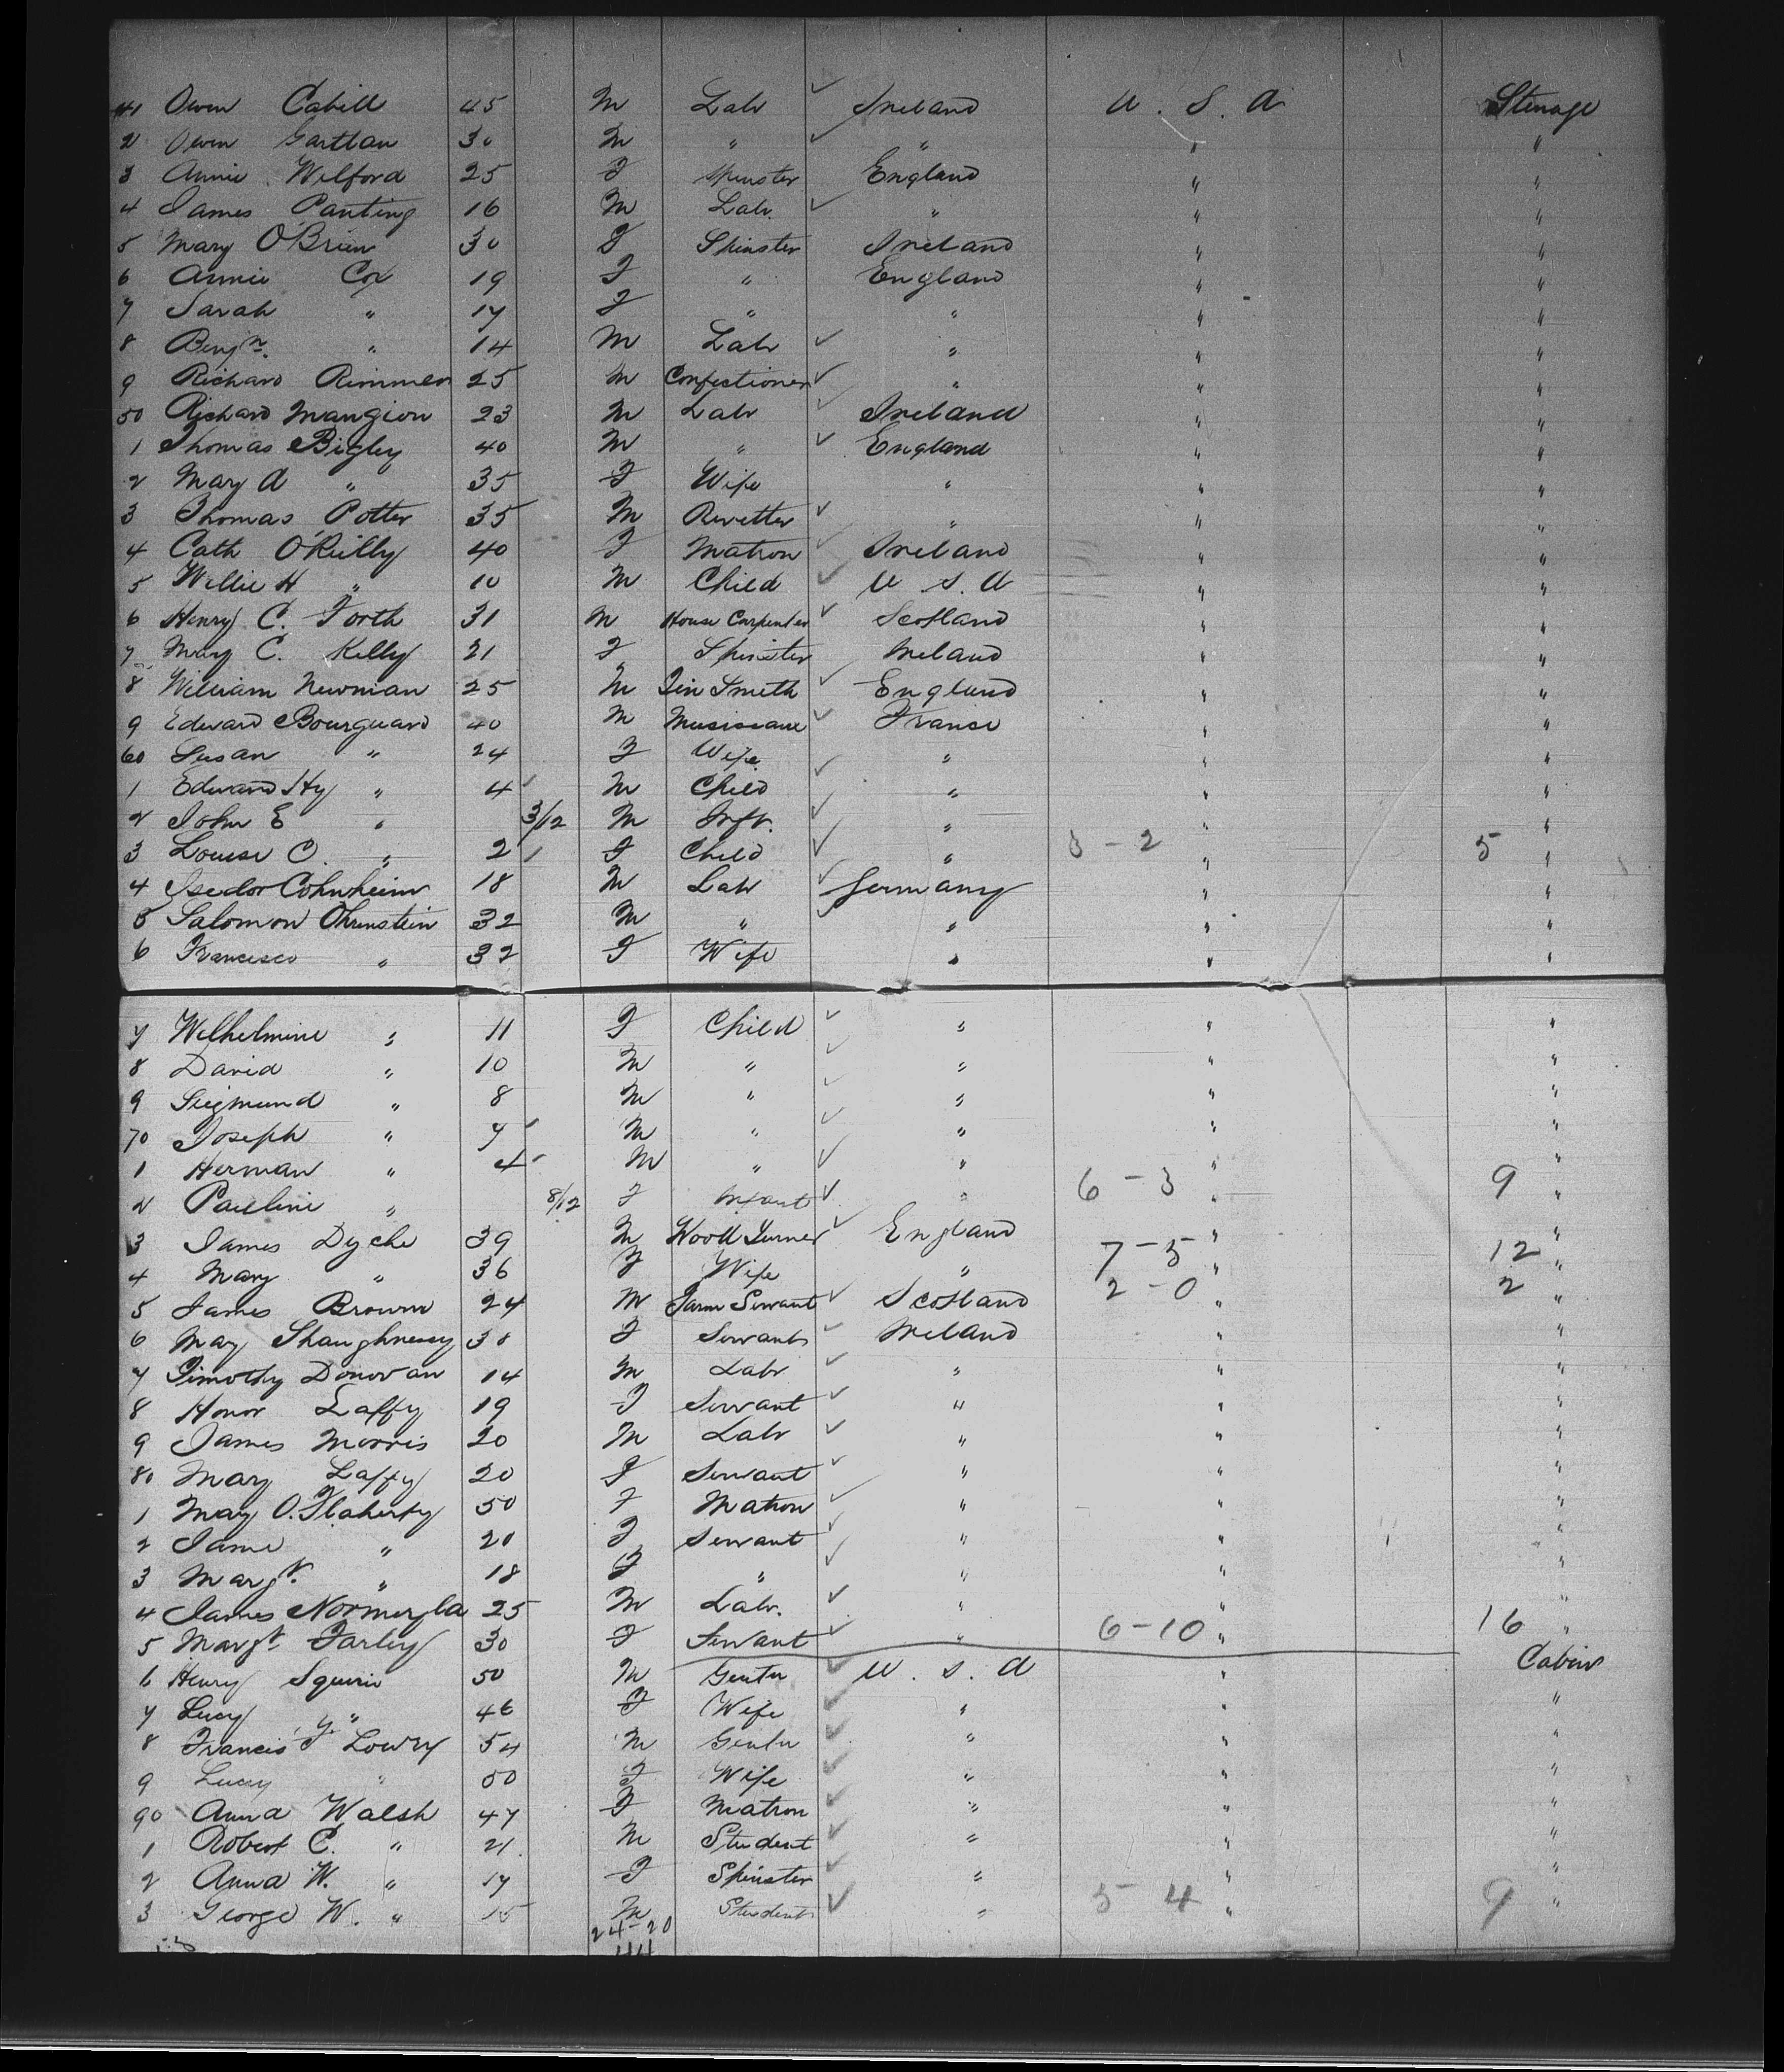 41 Owen Cahill 45 M Labr Ireland U. S. A Steerage
2 Owen Gartlan 30 M " " " "
3 Annie Welford 25 F Spinster England " "
4 James Panting 16 M Labr. " " "
5 Mary O'Brien 30 F Spinster Ireland " "
6 Annie Cox 19 F " England " "
7 Sarah " 17 F " " " "
8 Benjn. " 14 M Labr " " "
9 Richard Rimmer 25 M Confectioner " " "
50 Richard Mangion 23 M Labr Ireland " "
1 Thomas Bigley 40 M " England " "
2 Mary A " 35 F Wife " " "
3 Thomas Potter 35 M Rivetter " " "
4 Cath O'Reilly 40 F Matron Ireland " "
5 Willie H " 10 M Child U S. A " "
6 Henry C. Forth 31 M House Carpenter Scotland " "
7 Mary C. Kelly 21 F Spinster Ireland " "
8 William Newman 25 M Tin Smith England " "
9 Edward Bourguard 40 M Musician France " "
60 Susan " 24 F Wife " " "
1 Edward Hy " 4 M Child " " "
2 John E " 3/12 M Inft. " " "
3 Louise C. " 2 F Child " 3 - 2 " 5 "
4 Isedor Cohnheim 18 M Labr Germany " "
5 Salomon Ohrnstein 32 M " " " "
6 Francisco " 32 F Wife " " "
7 Wilhelmine " 11 F Child " " "
8 David " 10 M " " " "
9 Siegmund " 8 M " " " "
70 Joseph " 7 M " " " "
1 Herman " 4 M " " " "
2 Pauline " 8/12 F Infant " 6 - 3 " 9 "
3 James Dyche 39 M Wood Turner England " "
4 Mary " 36 F Wife " 7 - 5 " 12 "
5 James Brown 24 M Farm Servant Scotland 2 - 0 " 2 "
6 Mary Shaughnessy 38 F Servant Ireland " "
7 Timothy Donovan 14 M Labr " " "
8 Honor Laffy 19 F Servant " " "
9 James Morris 20 M Labr " " "
80 Mary Laffy 20 F Servant " " "
1 Mary O. Flaherty 50 F Matron " " "
2 Jane " 20 F Servant " " "
3 Margt. " 18 F " " " "
4 James Normeyla 25 M Labr. " " "
5 Margt. Farley 30 F Servant " 6 - 10 " 16 "
6 Henry Squire 50 M Gentn U. S. A " Cabin
7 Lucy " 46 F Wife " " "
8 Francis Y. Lowry 54 M Gentn " " "
9 Lucy " 50 F Wife " " "
90 Anna Walsh 47 F Matron " " "
1 Robert C. " 21. M Student " " "
2 Anna W. " 17 F Spinster " " "
3 George W. " 15 M Student " 5 4 " 9 "
24 - 20
44